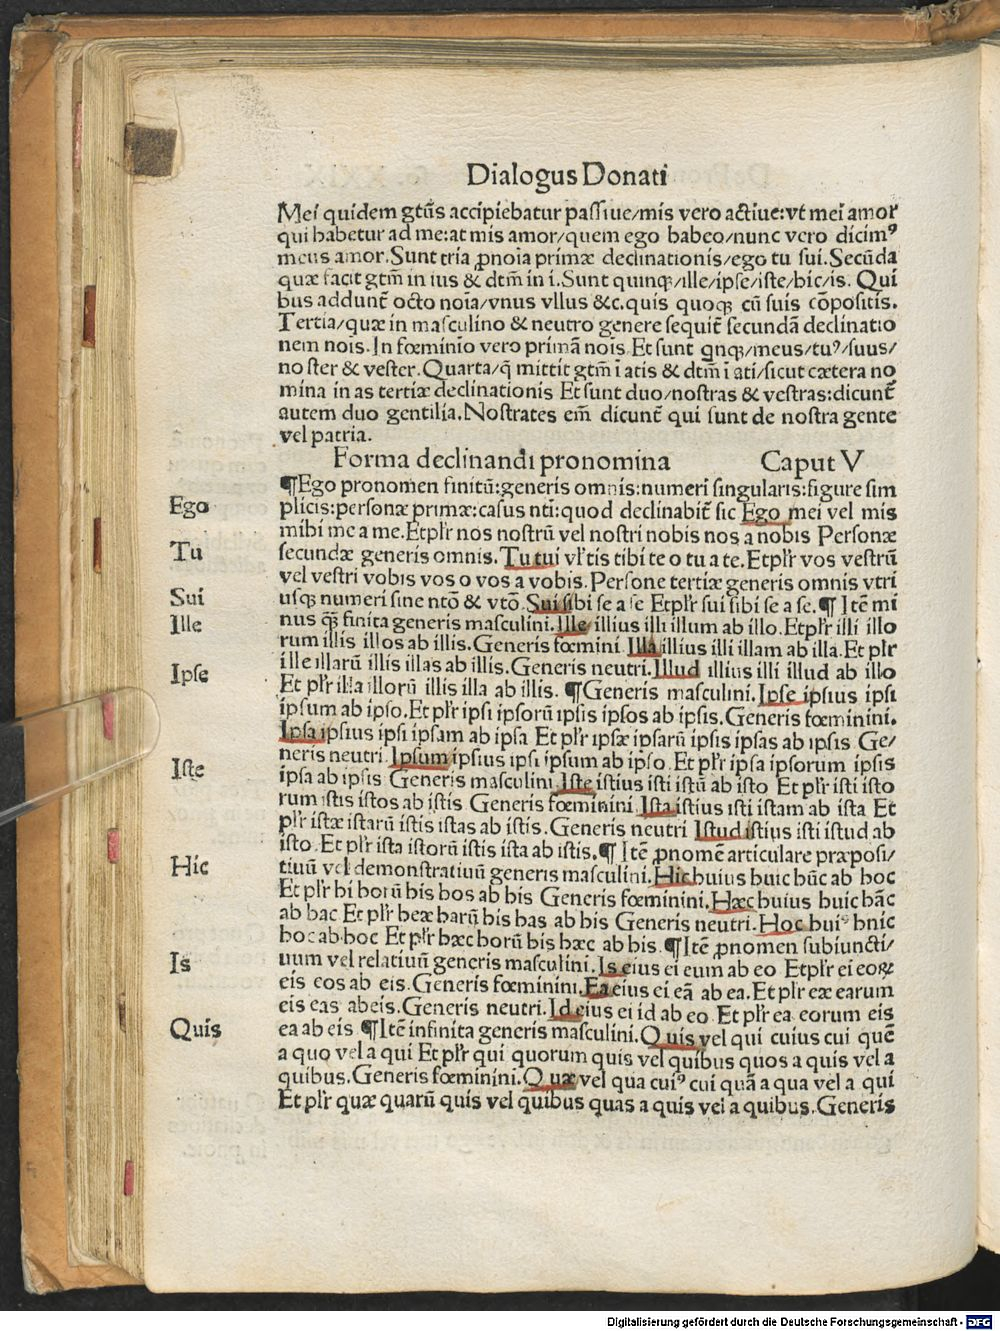 Dialogus Donati
Mei quidem gtūs accipiebatur passiue/mis vero actiue:vt mei amor
qui habetur ad me:at mis amor/quem ego habeo/nunc vero dicimꝰ
meus amor.Sunt tria ꝓnoīa primæ declinationis/ego tu sui.Secūda
quæ facit gtm̄ in ius & dtm̄ in i.Sunt quinqꝫ/ille/ipse/iste/hic/is. Qui
bus addunt̄ octo noīa/vnus vllus &c.quis quoqꝫ cū suis cōpositis.
Tertia/quæ in masculino & neutro genere sequit̄ secundā declinatio
nem nois. In fœminio vero primā nois. Et sunt qnqꝫ/meus/tuꝰ/suus/
noster & vester. Quarta/q̄ mittit gtm̄ ī atis & dtm̄ ī ati/sicut cætera no
mina in as tertiæ declinationis Et sunt duo/nostras & vestras:dicunt̄
autem duo gentilia. Nostrates em̄ dicunt̄ qui sunt de nostra gente
vel patria.
Forma declinandi pronomina Caput V
¶Ego pronomen finitū:generis omnis:numeri singularis:figure sim
Ego
plicis:personæ primæ:casus nti:quod declinabit̄ sic Ego mei vel mis
mihi me a me.Et pl'r nos nostrū vel nostri nobis nos a nobis Personæ
Tu
secundæ generis omnis. Tu tui vl' tis tibi te o tu a te. Et pl'r vos vestrū
vel vestri vobis vos o vos a vobis. Persone tertiæ generis omnis vtri
Sui
usqꝫ numeri sine ntō & vtō. Sui sibi se a se Et pl'r sui sibi se a se. ¶ Itē mi
Ille
nus qꝫ finita generis masculini. Ille illius illi illum ab illo. Et pl'r illi illo
rum illis illos ab illis. Generis fœmini Illa illius illi illam ab illa. Et plr
ille illarū illis illas ab illis. Generis neutri. Illud illius illi illud ab illo
Ipse
Et pl'r illa illorū illis illa ab illis. ¶Generis masculini. Ipse ipsius ipsi
ipsum ab ipso. Et pl'r ipsi ipsorū ipsis ipsos ab ipsis. Generis fœminini.
Ipsa ipsius ipsi ipsam ab ipsa Et pl'r ipsæ ipsarū ipsis ipsas ab ipsis Ge/
neris neutri. Ipsum ipsius ipsi ipsum ab ipso. Et pl'r ipsa ipsorum ipsis
Iste
ipsa ab ipsis Generis masculini. Iste istius isti istū ab isto Et pl'r isti isto
rum istis istos ab istis Generis fœminini. Ista istius isti istam ab ista Et
pl'r istæ istarū istis istas ab istis. Generis neutri Istud istius isti istud ab
isto. Et pl'r ista istorū istis ista ab istis. ¶ Itē ꝓnomē articulare præposi/
Hic
tiuū vel demonstratiuū generis masculini. Hic huius huic hūc ab hoc
Et pl'r hi horū his hos ab his Generis fœminini. Hæc huius huic hāc
ab hac Et pl'r heæ harū his has ab his Generis neutri. Hoc huiꝰ hnic
hoc ab hoc Et pl'r hæc horū his hæc ab his. ¶Itē ꝓnomen subiuncti/
Is
uum vel relatiuū generis masculini. Is eius ei eum ab eo Et pl'r ei eoꝝ
eis eos ab eis. Generis fœminini. Ea eius ei eā ab ea. Et pl'r eæ earum
eis eas abeis. Generis neutri. Id eius ei id ab eo Et pl'r ea eorum eis
Quis
ea ab eis ¶Itē infinita generis masculini. Quis vel qui cuius cui quē
a quo vel a qui Et pl'r qui quorum quis vel quibus quos a quis vel a
quibus. Generis fœminini. Quæ vel qua cuiꝰ cui quā a qua vel a qui
Et pl'r quæ quarū quis vel quibus quas a quis vel a quibus. Generis
Digitalisierung gefördert durch die Deutsche Forschungsgemeinschaft - DFG